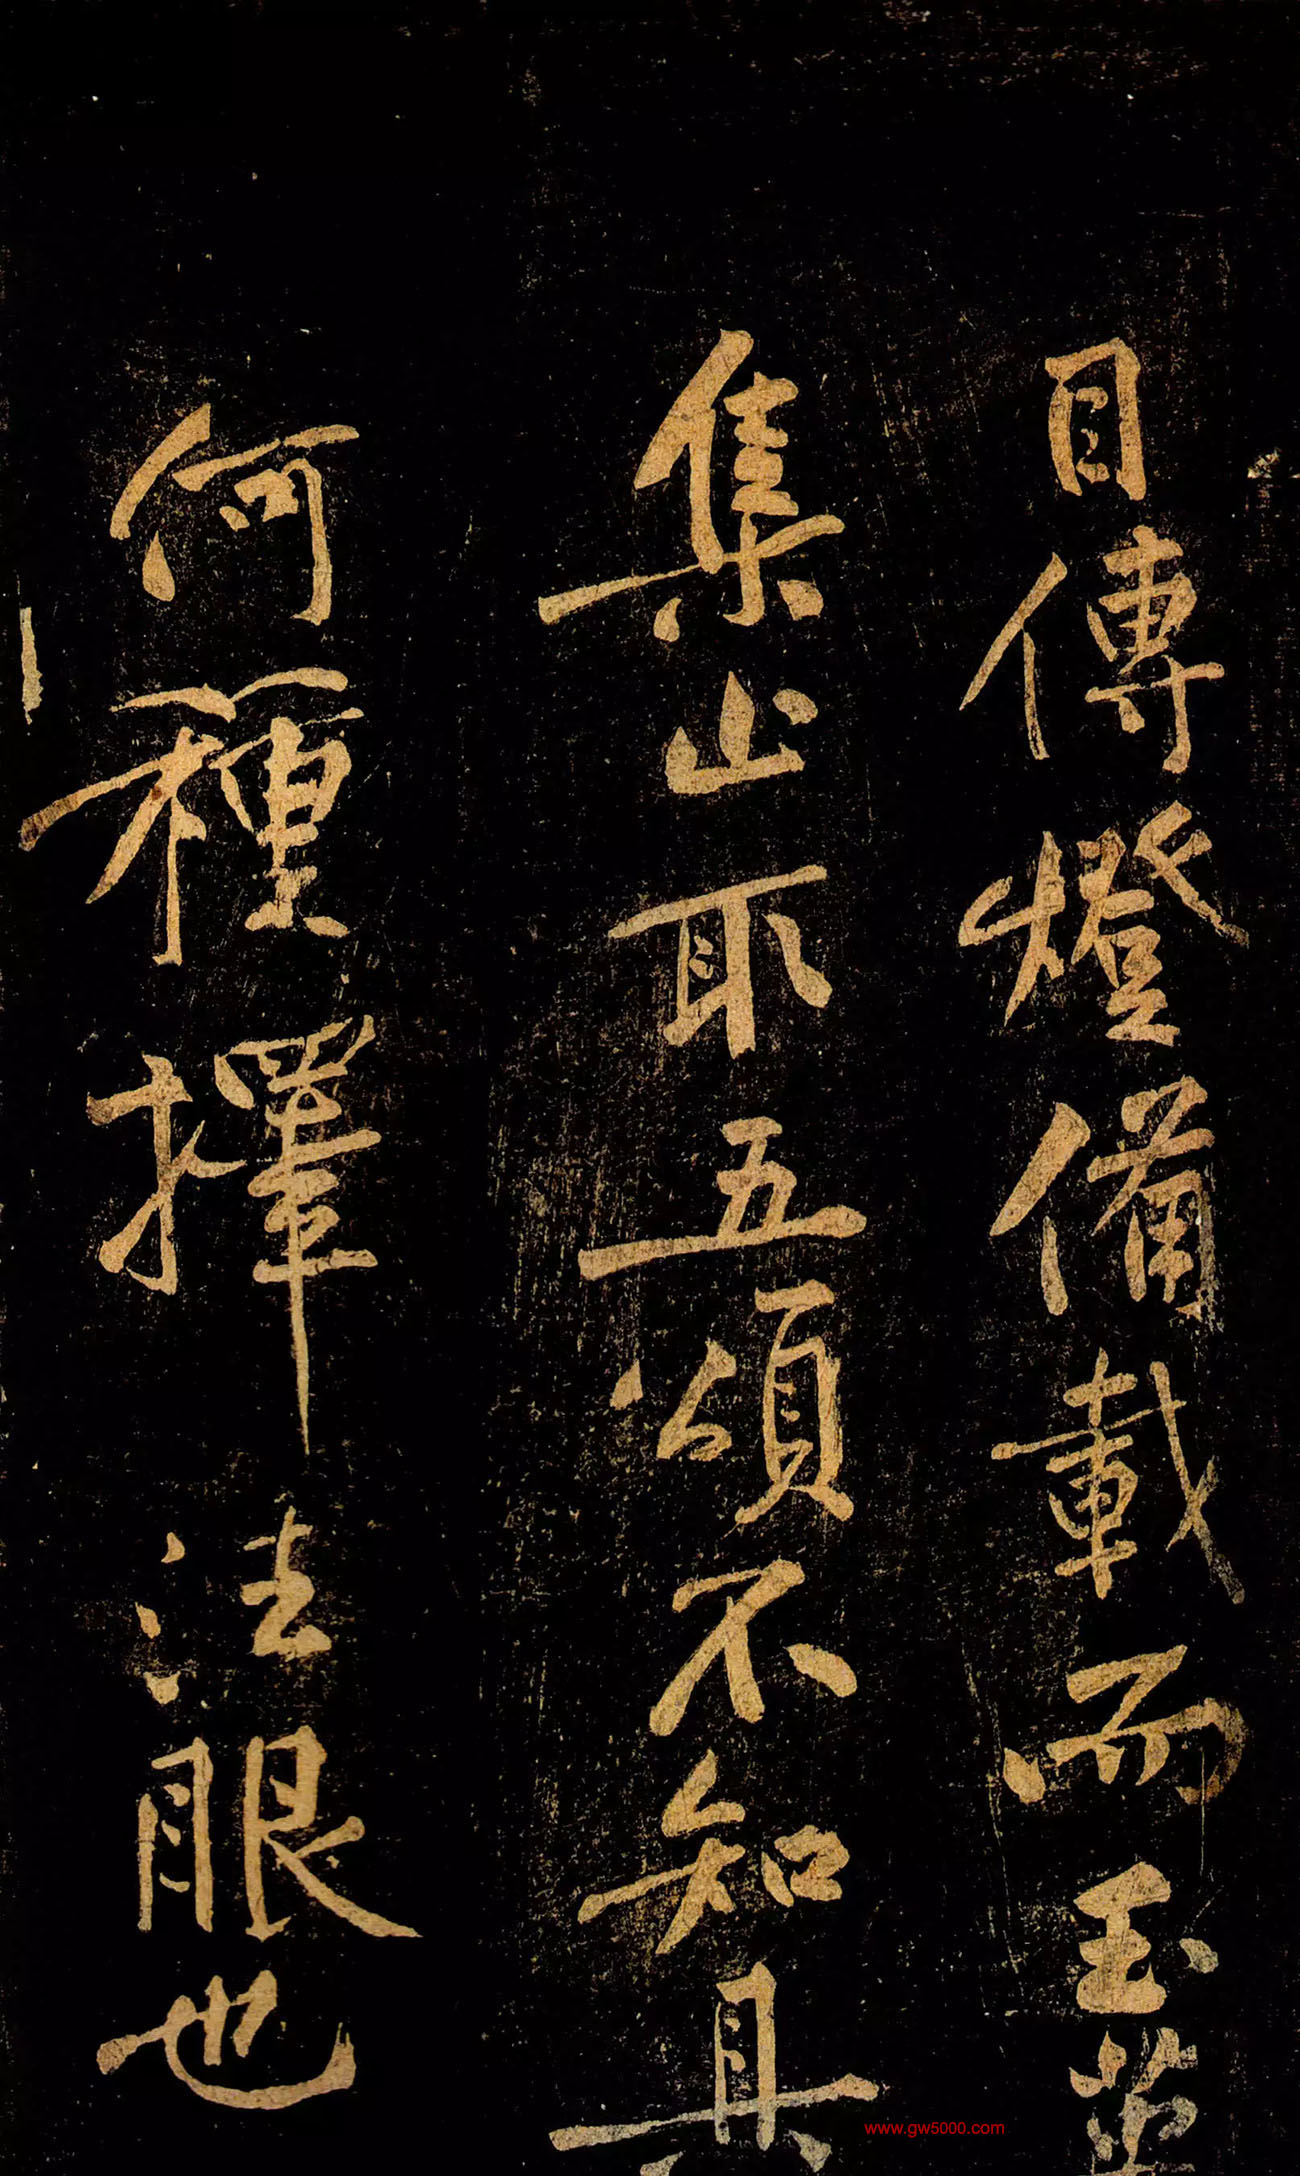 目傳燈備載而玉英
集止取五頌不知具
何種擇法眼也
www.gw5000.com